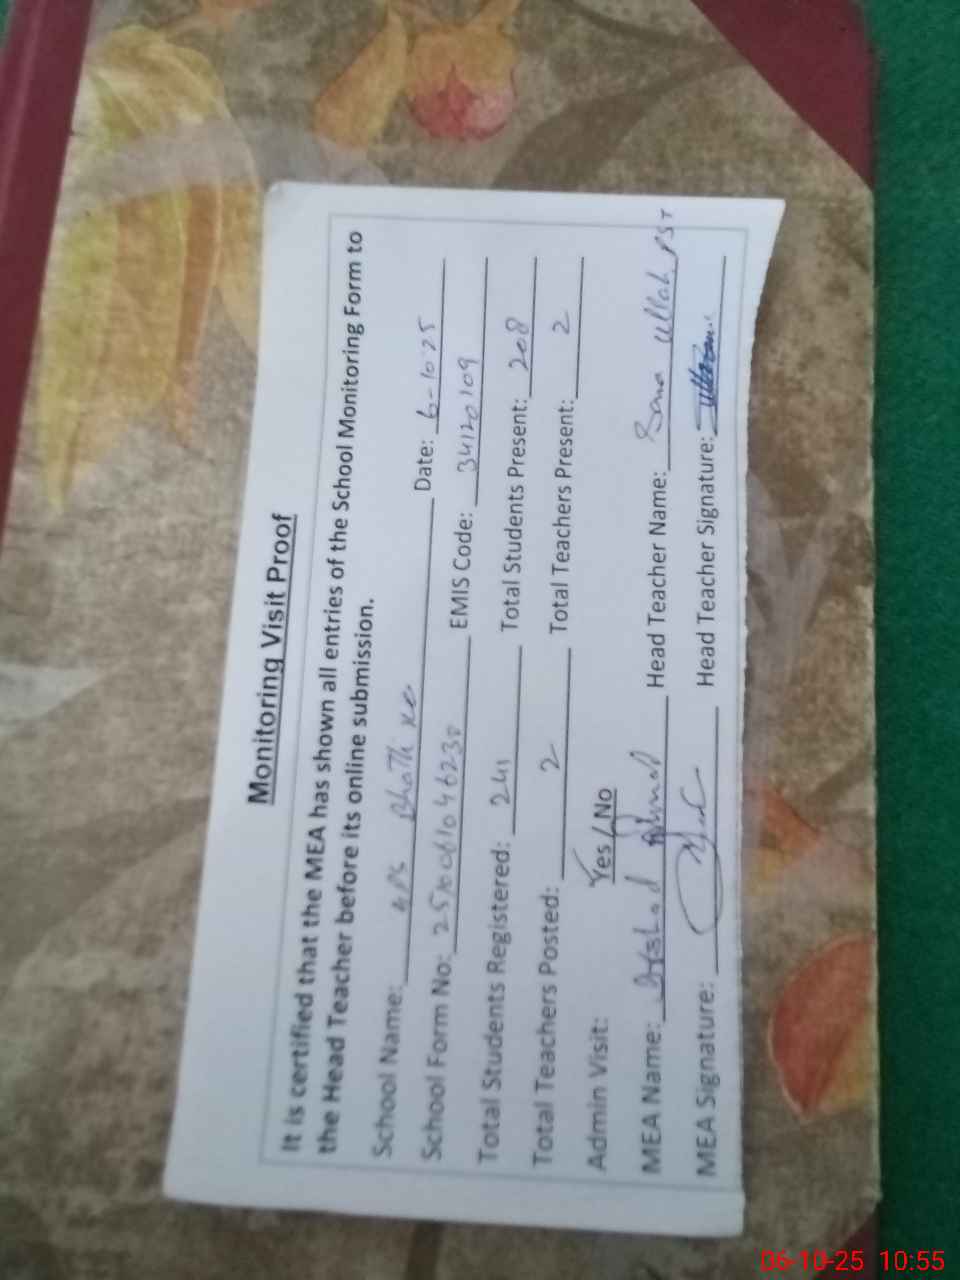 Monitoring Visit Proof
It is certified that the MEA has shown all entries of the School Monitoring Form to
the Head Teacher before its online submission.
School Name: GPS Bhathi Date: 6-10-25
School Form No: EMIS Code: 34120109
Total Students Registered: 241 Total Students Present: 208
Total Teachers Posted: 2 Total Teachers Present: 2
Admin Visit: Yes / No
MEA Name: Ahmad Head Teacher Name: Sana ullah PST
MEA Signature: Head Teacher Signature:
06-10-25 10:55